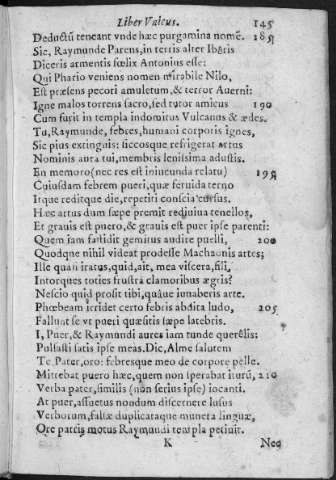 Liber Vnicus. 145
Deductũ teneant vnde hæc purgamina nomẽ. 185
Sic, Raymunde Parens, in terris alter Ibẽris
Diceris armentis fœlix Antonius esse:
Qui Phario veniens nomen mirabile Nilo,
Est præsens pecori amuletum, & terror Auerni:
Igne malos torrens sacro, sed tutor amicus 190
Cum furit in templa indomitus Vulcanus & ædes.
Tu, Raymunde, febres, humani corporis ignes,
Sic pius extinguis: siccosque refrigerat artus
Nominis aura tui, membris lenissima adustis.
En memoro (nec res est iniucunda relatu) 195
Cuiusdam febrem pueri, quæ feruida terno
Itque reditque die, repetiti conscia cursus.
Hæc artus dum sæpe premit rediuiua tenellos,
Et grauis est puero, & grauis est puer ipse parenti:
Quem iam fastidit gemitus audire puelli, 200
Quodque nihil videat prodesse Machaonis artes;
Ille quasi iratus, quid, ait, mea viscera, fili,
Intorques toties frustrà clamoribus ægris?
Nescio quid prosit tibi, quâue iunaberis arte.
Phœbeam irridet certo febris abdita ludo, 205
Fallunt se vt pueri quæsitis sæpe latebris.
I, Puer, & Raymundi aures iam tunde querêlis:
Pulsasti satis ipse meas. Dic, Alme salutem
Te Pater, oro: febresque meo de corpore pelle.
Mittebat puero hæc, quem non sperabat iturũ, 210
Verba pater, similis (non serius ipse) iocanti.
At puer, assuetus nondum discernere lusus
Verborum, falsæ duplicatáque munera linguæ,
Ore patris motus Raymundi templa petiuit.
K Nec